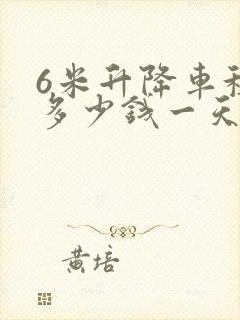 6米升降車
多少錢一天
黄培